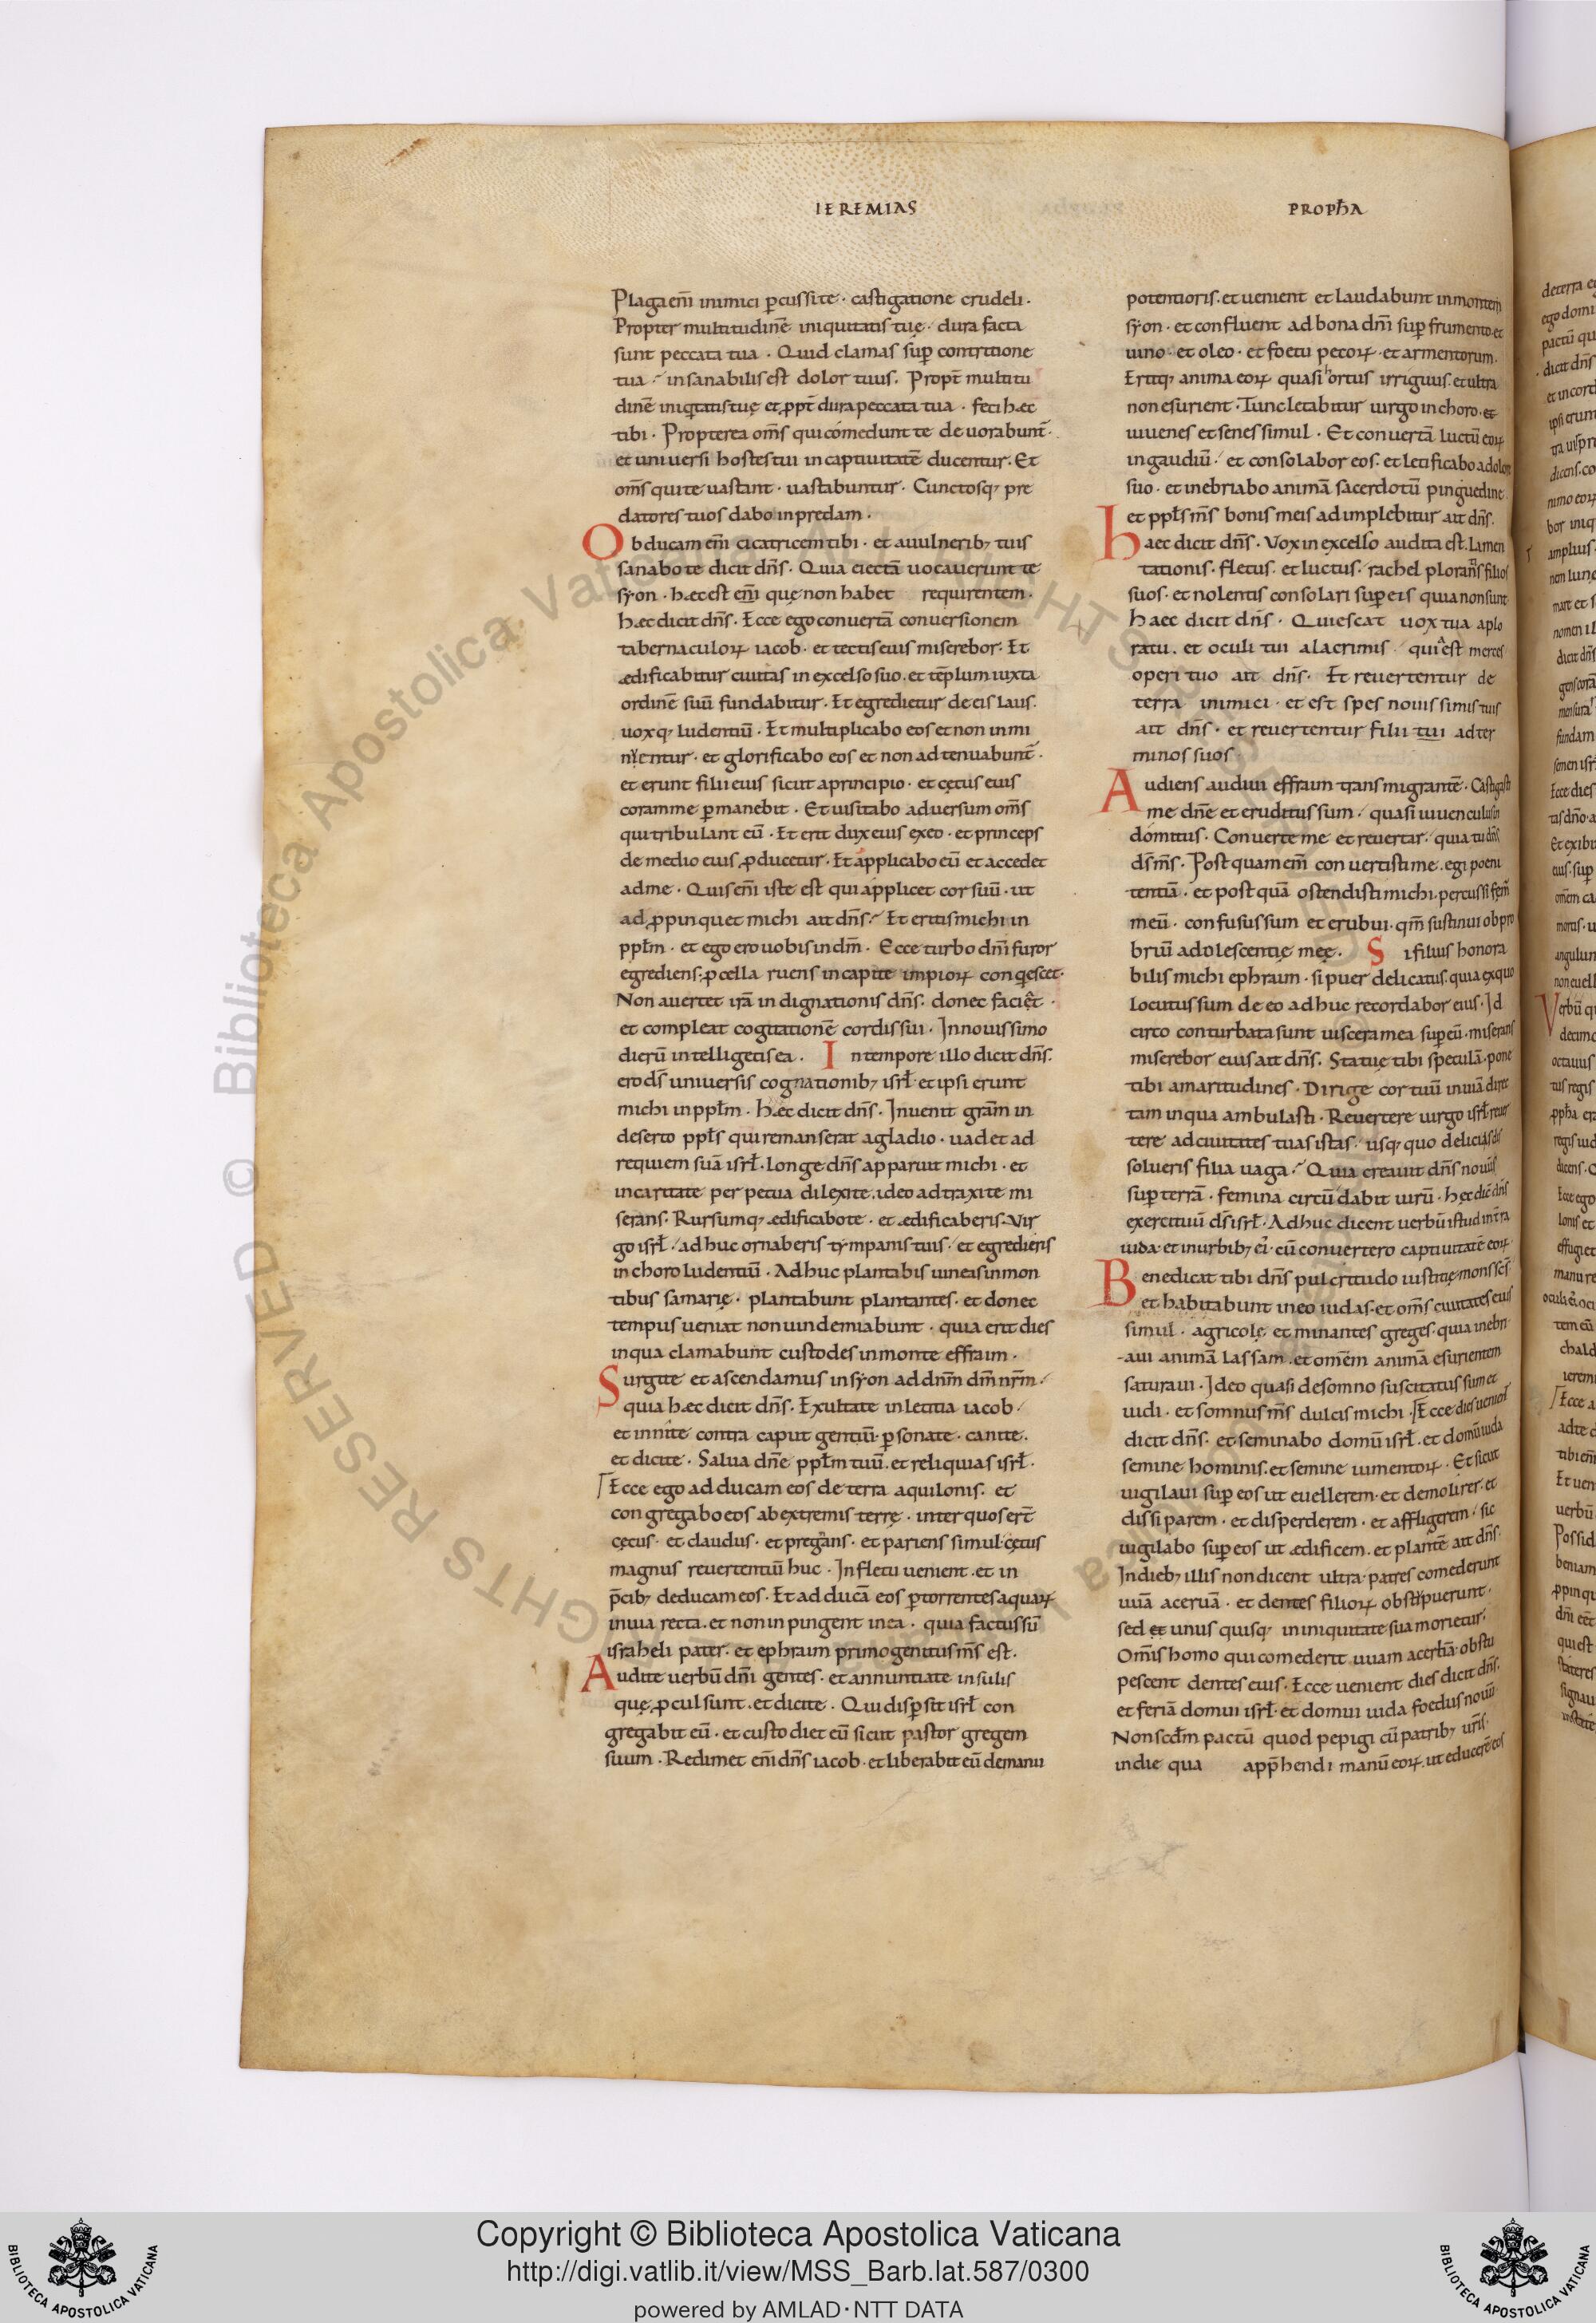 IEREMIAS
PROPĦA
Plaga enī inimici ꝑcussi te · castigatione crudeli ·
Propter multitudinē iniquitatis tuę · dura facta
sunt peccata tua · Quid clamas suꝑ contritione
tua · insanabilis est dolor tuus. Propt̄ multitu
dinē iniq̇tatis tuę et ꝓpt̄ dura peccata tua · feci hæc
tibi · Propterea om̄s qui comedunt te deuorabunt̄ ·
et uniuersi hostes tui in captiuitatē ducentur. Et
om̄s qui te uastant · uastabuntur · Cunctosq; pre
datores tuos dabo in predam ·
Obducam enī cicatricem tibi · et a uulnerib; tuis
sanabo te dicit dn̄s · Quia eiectā uocauerunt te
syon · hæc est enī quę non habet requirentem ·
hæc dicit dn̄s · Ecce ego conuertā conuersionem
tabernaculoꝝ iacob · et tectis eius miserebor · Et
ædificabitur ciuitas in excelso suo. et tēplum iuxta
ordinē suū fundabitur · Et egredietur de eis laus.
uoxq; ludentiū · Et multiplicabo eos et non inmi
nuentur · et glorificabo eos et non adtenuabunt̄ ·
et erunt filii eius sicut a principio · et cętus eius
coram me ꝑmanebit · Et uisitabo aduersum om̄s
qui tribulant eū · Et erit dux eius ex eo · et princeps
de medio eius ꝓducetur · Et applicabo eū et accedet
ad me · Quis enī iste est qui applicet cor suū · ut
ad ꝓpinquet michi ait dn̄s · Et eritis michi in
ppłm · et ego ero uobis in dm̄ · Ecce turbo dn̄i furor
egrediens. ꝓcella ruens in capite impioꝝ conq̇escet ·
Non auertet irā indignationis dn̄s. donec faciet ·
et compleat cogitationē cordis sui · In nouissimo
dierū intelligetis ea. In tempore illo dicit dn̄s.
ero ds̄ uniuersis cognationib; isrł. et ipsi erunt
michi in ppłm · hæc dicit dn̄s · Inuenit grām in
deserto ppłs qui remanserat a gladio · uadet ad
requiem suā isrł. Longe dn̄s apparuit michi · et
in caritate perpetua dilexi te. ideo adtraxi te mi
serans · Rursumq; ædificabo te · et ædificaberis. Vir
go isrł. adhuc ornaberis tympanis tuis · et egredieris
in choro ludentiū · Adhuc plantabis uineas in mon
tibus samarię · plantabunt plantantes · et donec
tempus ueniat non uindemiabunt · quia erit dies
in qua clamabunt custodes in monte effraim ·
Surgite et ascendamus in syon ad dn̄m dm̄ nr̄m ·
quia hæc dicit dn̄s · Exultate in letitia iacob ·
et innite contra caput gentiū · ꝑsonate · canite ·
et dicite · Salua dn̄e ppłm tuū. et reliquias isrł ·
Ecce ego adducam eos de terra aquilonis. et
congregabo eos ab extremis terrę · inter quos er̄t
cęcus · et claudus · et pregnans · et pariens simul · cętus
magnus reuertentiū huc · In fletu uenient. et in
p̄cib; deducam eos · Et adducā eos ꝑ torrentes aquaꝝ
in uia recta. et non inpingent in ea · quia factus sū
israheli pater · et ephraim primogenitus m̄s est ·
Audite uerbū dn̄i gentes · et annuntiate insulis
quę ꝓcul sunt. et dicite · Qui disꝑsit isrł con
gregabit eū · et custodiet eū sicut pastor gregem
suum · Redimet enī dn̄s iacob · et liberabit eū de manu
potentioris. et uenient et laudabunt in montem
syon · et confluent ad bona dn̄i suꝑ frumento. et
uino · et oleo · et foetu pecoꝝ · et armentorum.
Eritq; anima eoꝝ quasi hortus irriguus. et ultra
non esurient · Tunc letabitur uirgo in choro. et
iuuenes et senes simul · Et conuertā luctū eoꝝ
in gaudiū · et consolabor eos. et letificabo a dolore
suo · et inebriabo animā sacerdotū pinguedine
et ppłs m̄s bonis meis adimplebitur ait dn̄s.
haec dicit dn̄s · Vox in excelso audita est. Lamen
tationis · fletus. et luctus · rachel plorans filios
suos · et nolentis consolari suꝑ eis quia non sunt
haec dicit dn̄s · Quiescat uox tua a plo
ratu. et oculi tui a lacrimis quia est merces
operi tuo ait dn̄s · Et reuertentur de
terra inimici · et est spes nouissimis tuis
ait dn̄s · et reuertentur filii tui ad ter
minos suos ·
Audiens audiui effraim transmigrantē · Castigasti
me dn̄e et eruditus sum · quasi iuuenculus in
domitus · Conuerte me et reuertar · quia tu dn̄s
ds̄ m̄s · Postquam enī conuertisti me. egi poeni
tentiā · et postquā ostendisti michi. percussi fem̄
meū · confusus sum et erubui. qm̄ sustinui obpro
briū adolescentię meę. Si filius honora
bilis michi ephraim · si puer delicatus. quia ex quo
locutus sum de eo adhuc recordabor eius · Id
circo conturbata sunt uiscera mea suꝑ eū · miserans
miserebor eius ait dn̄s. Statue tibi speculā. pone
tibi amaritudines · Dirige cor tuū in uiā direc
tam in qua ambulasti · Reuertere uirgo isrł reuer
tere ad ciuitates tuas istas. usq; quo deliciis dis
solueris filia uaga · Quia creauit dn̄s nouū
suꝑ terrā · femina circūdabit uirū · hęc dic̄ dn̄s
exercituū ds̄ isrł. Adhuc dicent uerbū istud in t̄ra
iuda. et in urbib; eī. cū conuertero captiuitatē eoꝝ.
Benedicat tibi dn̄s pulcritudo iustitię mons sc̄s
et habitabunt in eo iudas. et om̄s ciuitates eius
simul · agricolę et minantes greges. quia inebri
aui animā lassam. et omēm animā esurientem
saturaui · Ideo quasi de somno suscitatus sum et
uidi · et somnus m̄s dulcis michi · Ecce dies uenient
dicit dn̄s. et seminabo domū isrł. et domū iuda
semine hominis. et semine iumentoꝝ · Et sicut
uigilaui suꝑ eos ut euellerem. et demolirer. et
dissiparem · et disperderem · et affligerem · sic
uigilabo suꝑ eos ut ædificem. et plantē ait dn̄s.
In dieb; illis non dicent ultra. patres comederunt
uuā aceruā · et dentes filioꝝ obstipuerunt.
sed et unus quisq; in iniquitate sua morietur.
Omīs homo qui comederit uuam acerbā. obstu
pescent dentes eius · Ecce uenient dies dicit dn̄s.
et feriā domui isrł. et domui iuda foedus nouū
Non scd̄m pactū quod pepigi cū patrib; ur̄is.
in die qua app̄hendi manū eoꝝ. ut educerē eos
Copyright © Biblioteca Apostolica Vaticana
http://digi.vatlib.it/view/MSS_Barb.lat.587/0300
powered by AMLAD·NTT DATA